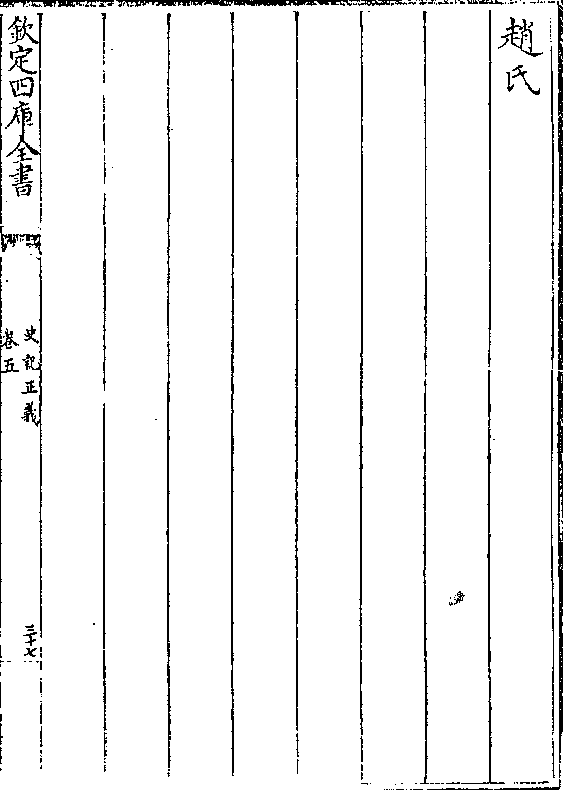 趙氏
欽定四庫全書
史記正義
卷五
三十七